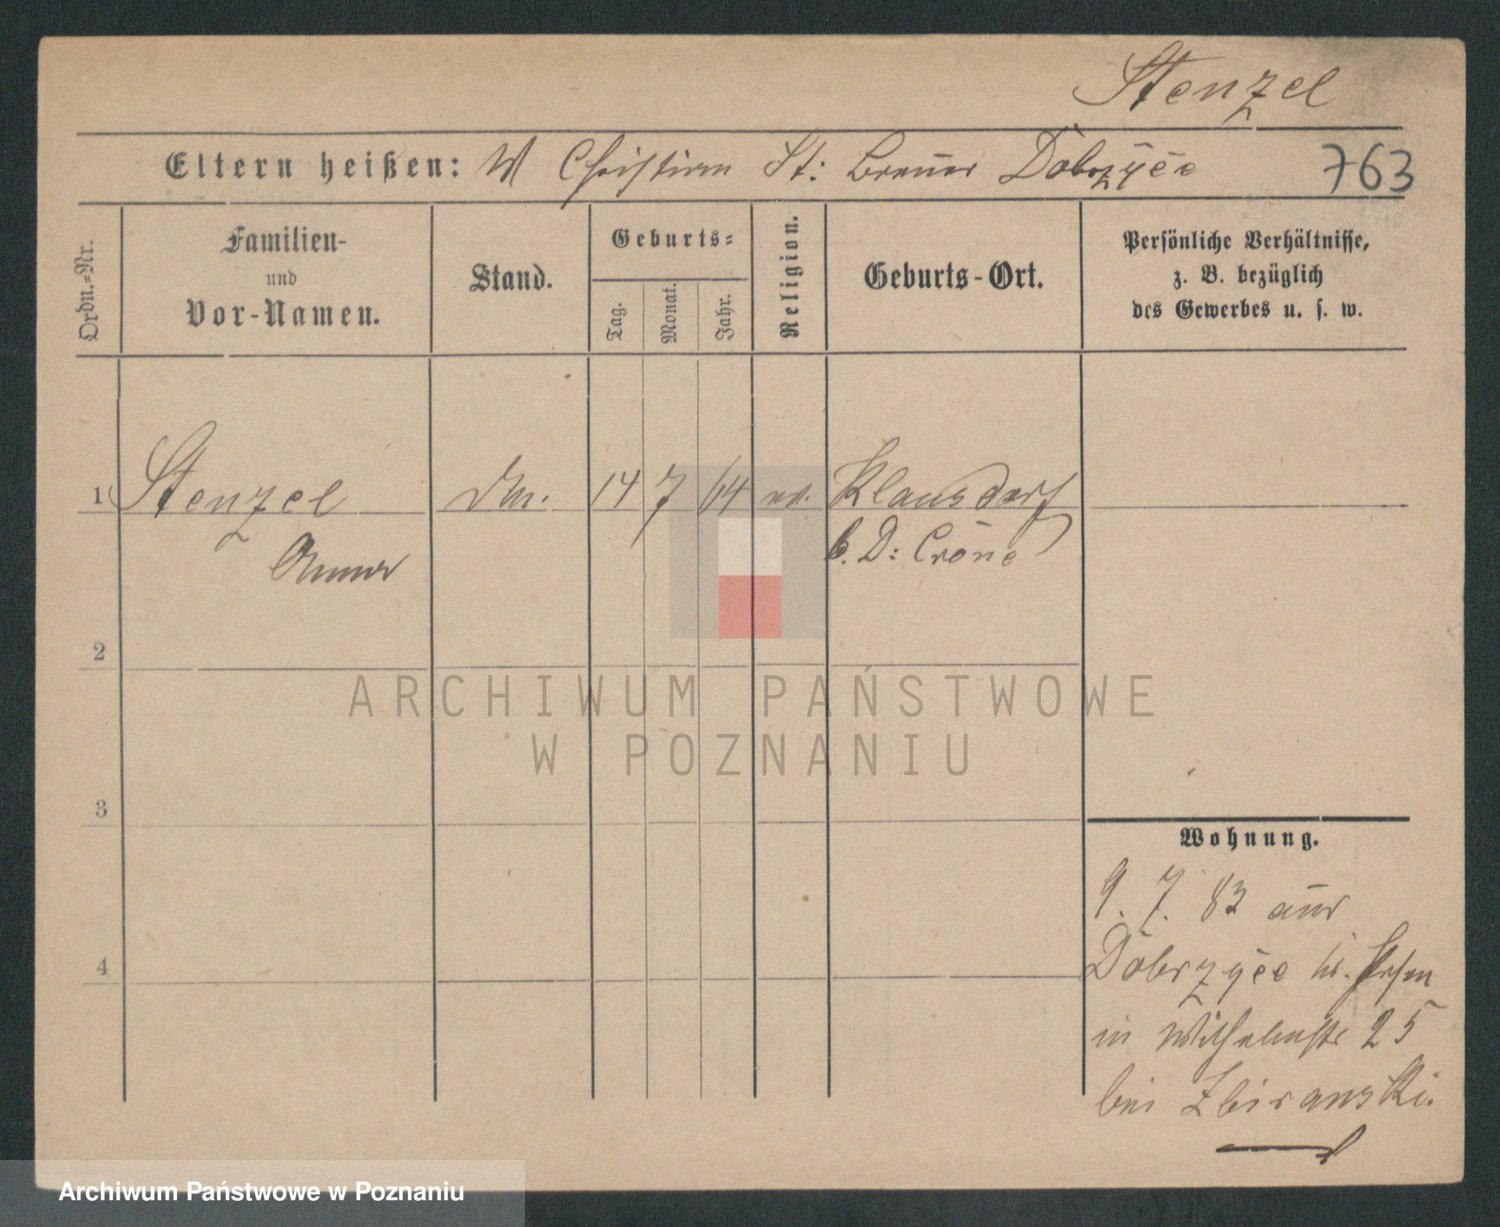 Stenzel
Eltern heißen: W Christian St: Brauer Dobrzyce
763
Ordn.-Nr.
Familien-
und
Vor-Namen.
Stand.
Geburts-
Tag.
Monat.
Jahr.
Religion.
Geburts-Ort.
Persönliche Verhältnisse,
z. B. bezüglich
des Gewerbes u. s. w.
1 Stenzel 14 7 64 Klausdorf
Anna b. D: Crone
2
3
4
Wohnung.
9. 7. 83 aus
Dobrzyce
in Wilhelmstr 25
bei
ARCHIWUM PAŃSTWOWE
W POZNANIU
Archiwum Państwowe w Poznaniu